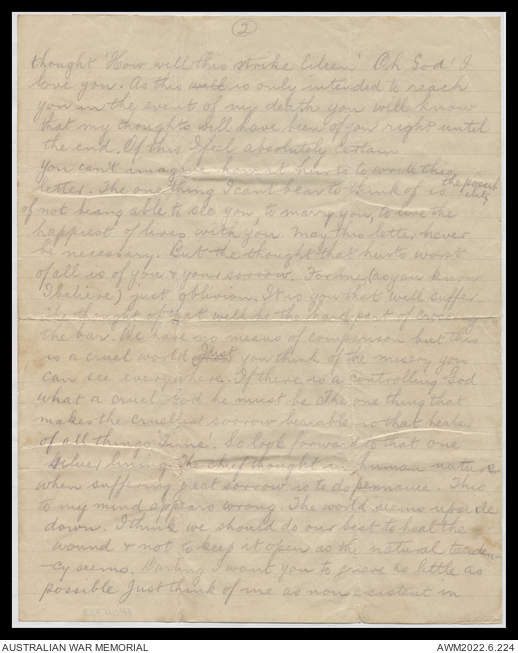 2
thought 'How will this strike Eileen' Oh God! I
love you. As this is only intended to reach
you in the event of my death you will know
that my thoughts will have been of you right until
the end. Of this I feel absolutely certain
You can't imagine how it hurts to write this
letter. The one thing I can't bear to think of is the possibility
of not being able to see you, to marry you, to live the
happiest of lives with you. May this letter never
be necessary. But the thought that hurts worst
of all is of you & your sorrow. For me, (as you know
I believe) just oblivion. It is you that will suffer.
The thought of that will be the hard part of crossing
the bar. We have no means of comparison but this
is a cruel world Just you think of the misery you
can see everywhere. If there is a controlling God
what a cruel God he must be. The one thing that
makes the cruellest sorrow bearable is that healer
of all things 'Time'. So look forward to that one
silver lining. The chief thought in human nature
when suffering great sorrow is to do pennance. This
to my mind appears wrong. The world seems upside
down. I think we should do our best to heal the
wound & not to keep it open as the natural tenden-
cy seems. Darling I want you to grieve as little as
possible Just think of me as non existent in
AUSTRALIAN WAR MEMORIAL
AWM2022.6.224